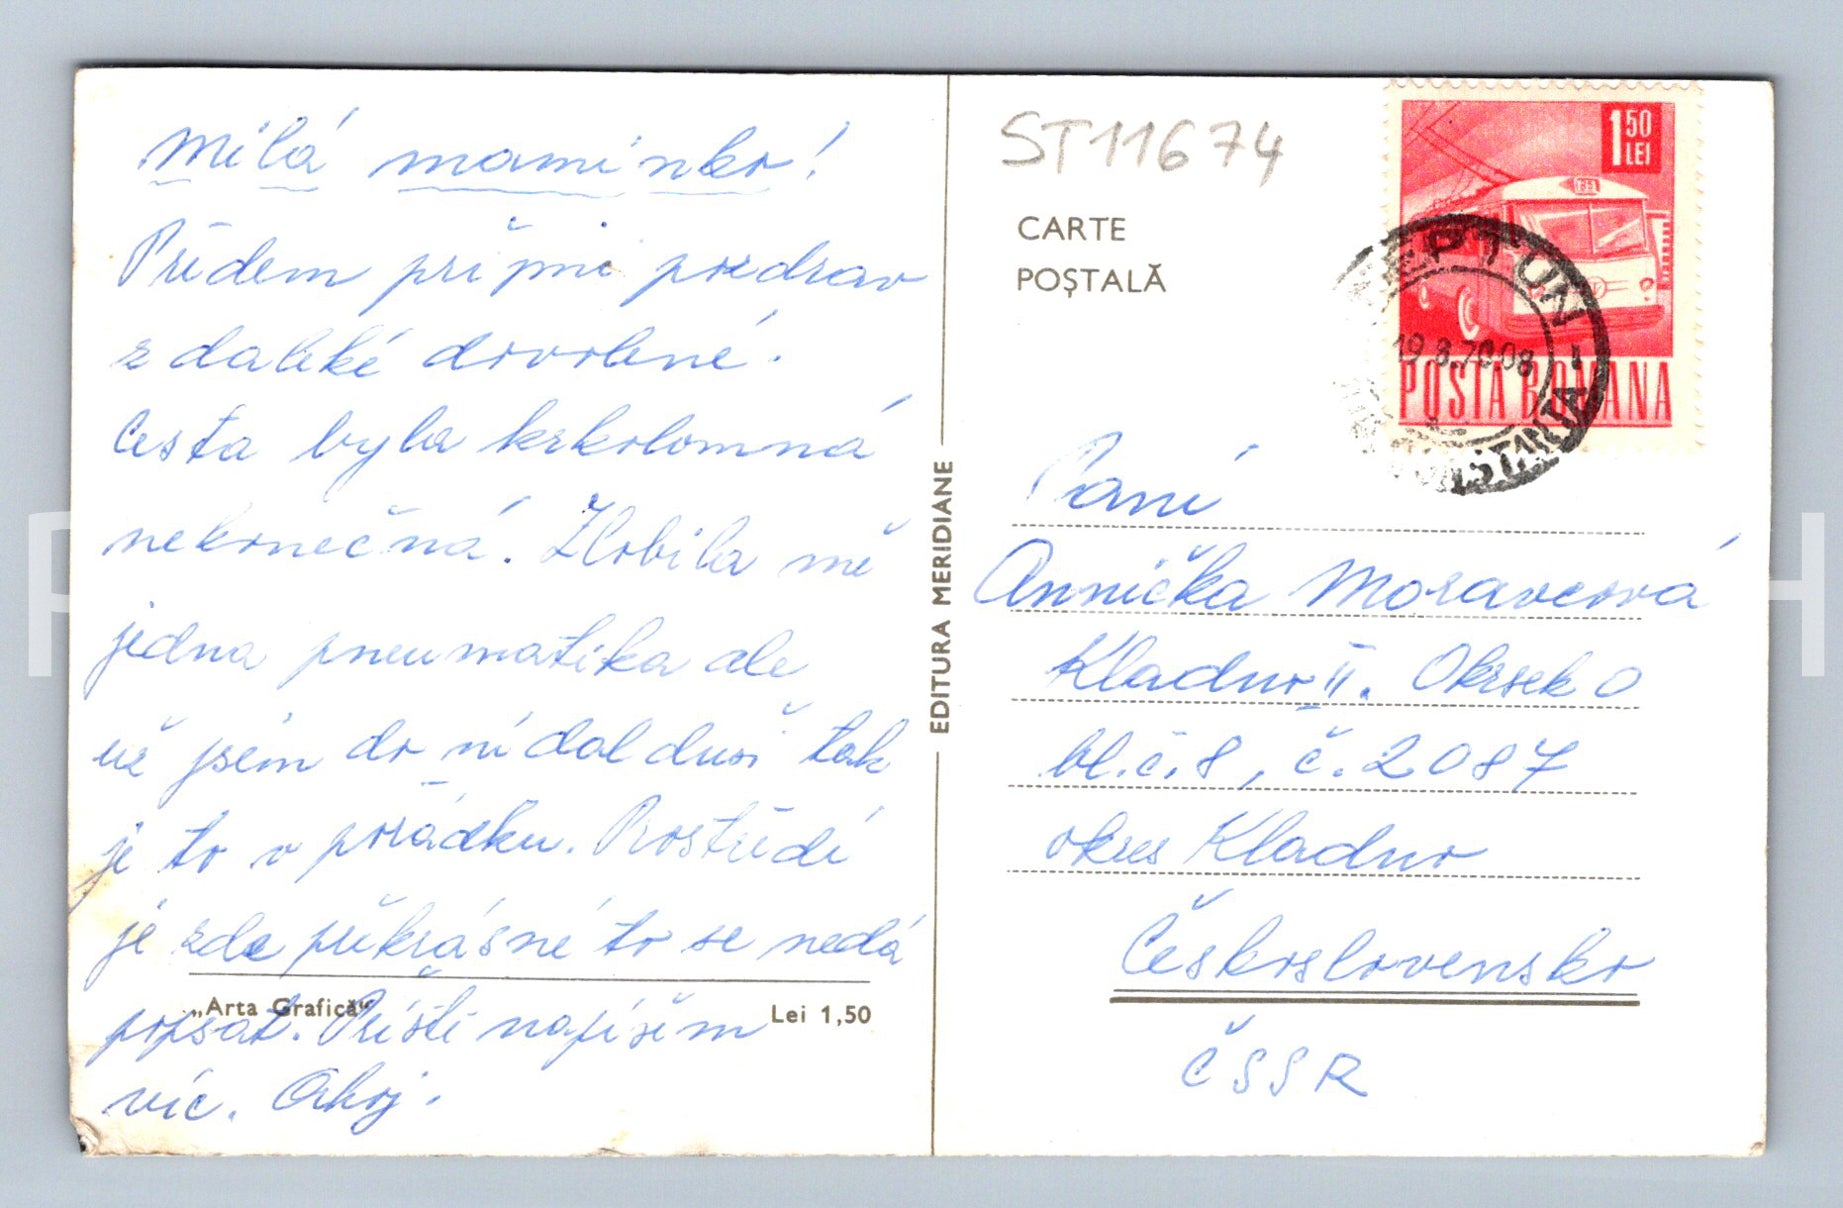 Milá maminko!
Předem přijmi pozdrav
z daleké dovolené.
Cesta byla krkolomná
nekonečná. Zlobila mě
jedna pneumatika ale
už jsem do ní dal duši tak
je to v pořádku. Prostředí
je zde překrásné to se nedá
popsat. Příště napíšim
víc. Ahoj.
„Arta Grafică“
Lei 1,50
EDITURA MERIDIANE
ST11674
CARTE
POȘTALĂ
1 50
LEI
POSTA ROMANA
NEPTUN
CONSTANȚA
Paní
Annička Moravcová
Kladno II. Okrsek 0
bl. č. 8, č. 2087
okres Kladno
Československo
ČSSR